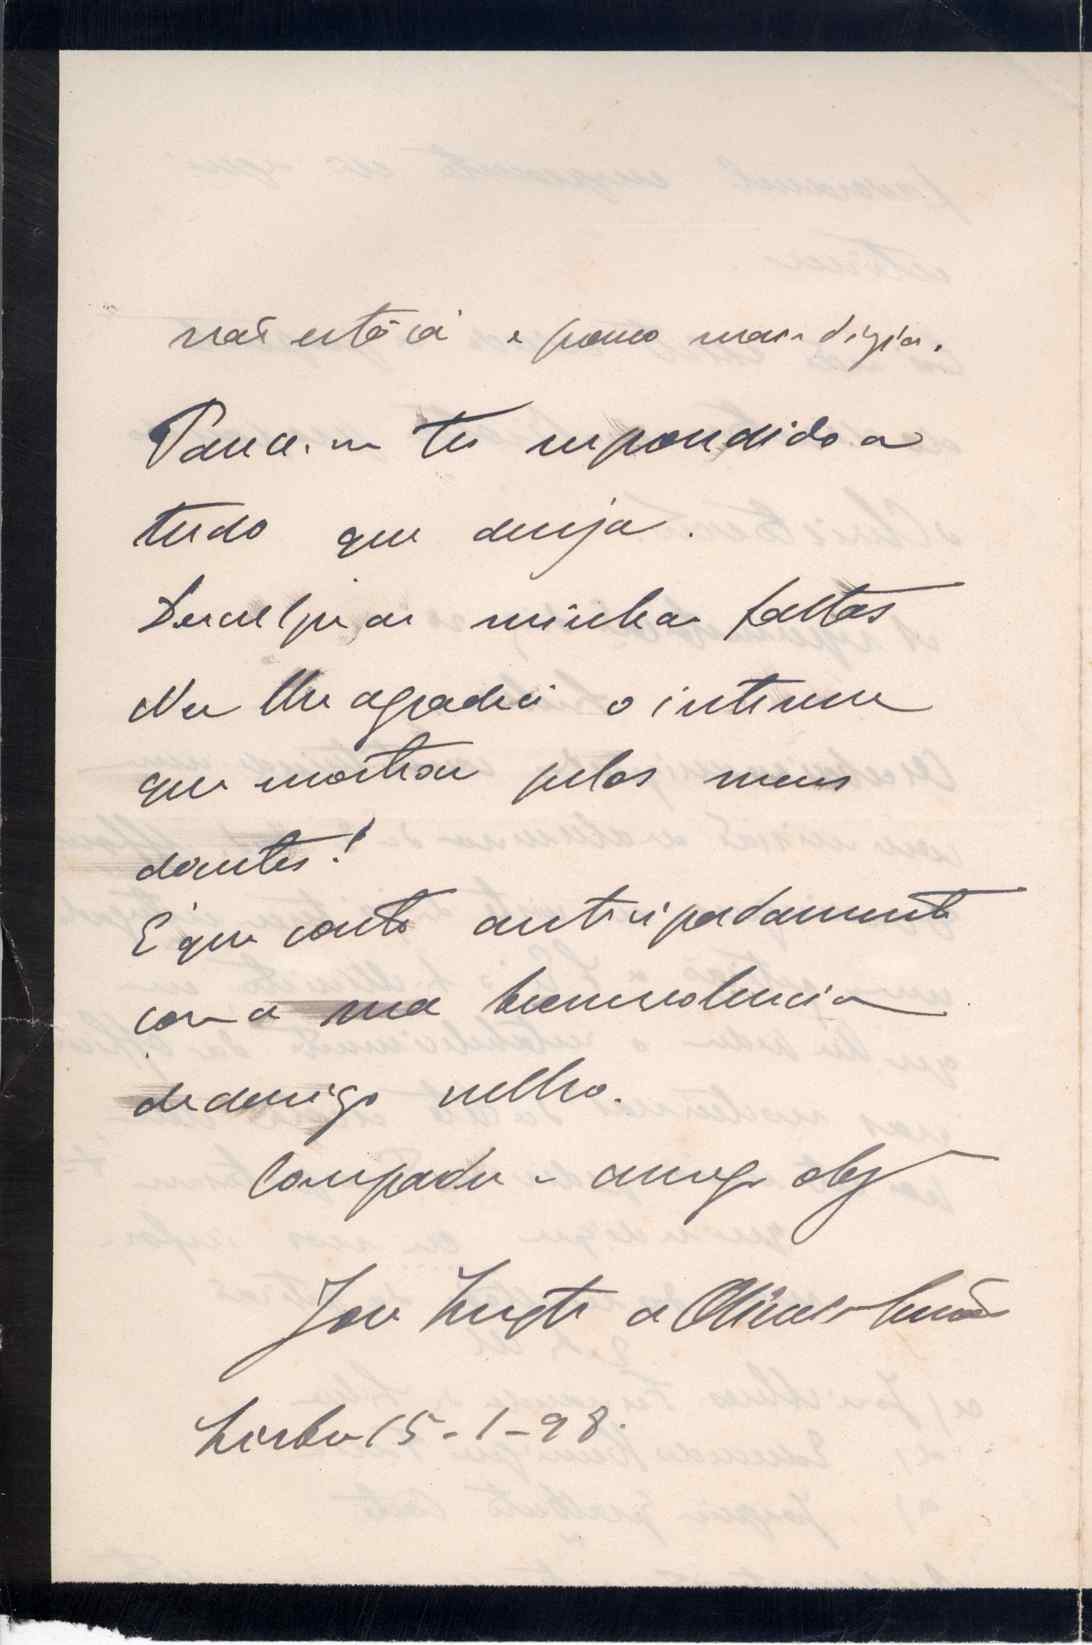 não está cá e pouco mais dizia.
Parece-me ter respondido a
tudo que deseja.
Desculpe as minhas faltas
Nem lhe agradeci o interesse
que mostrou pelos meus
doentes!
É que conto antecipadamente
com a sua benevolencia
de amigo velho.
Compadre e amigo obgº
José de
Lisboa 15-1-98.